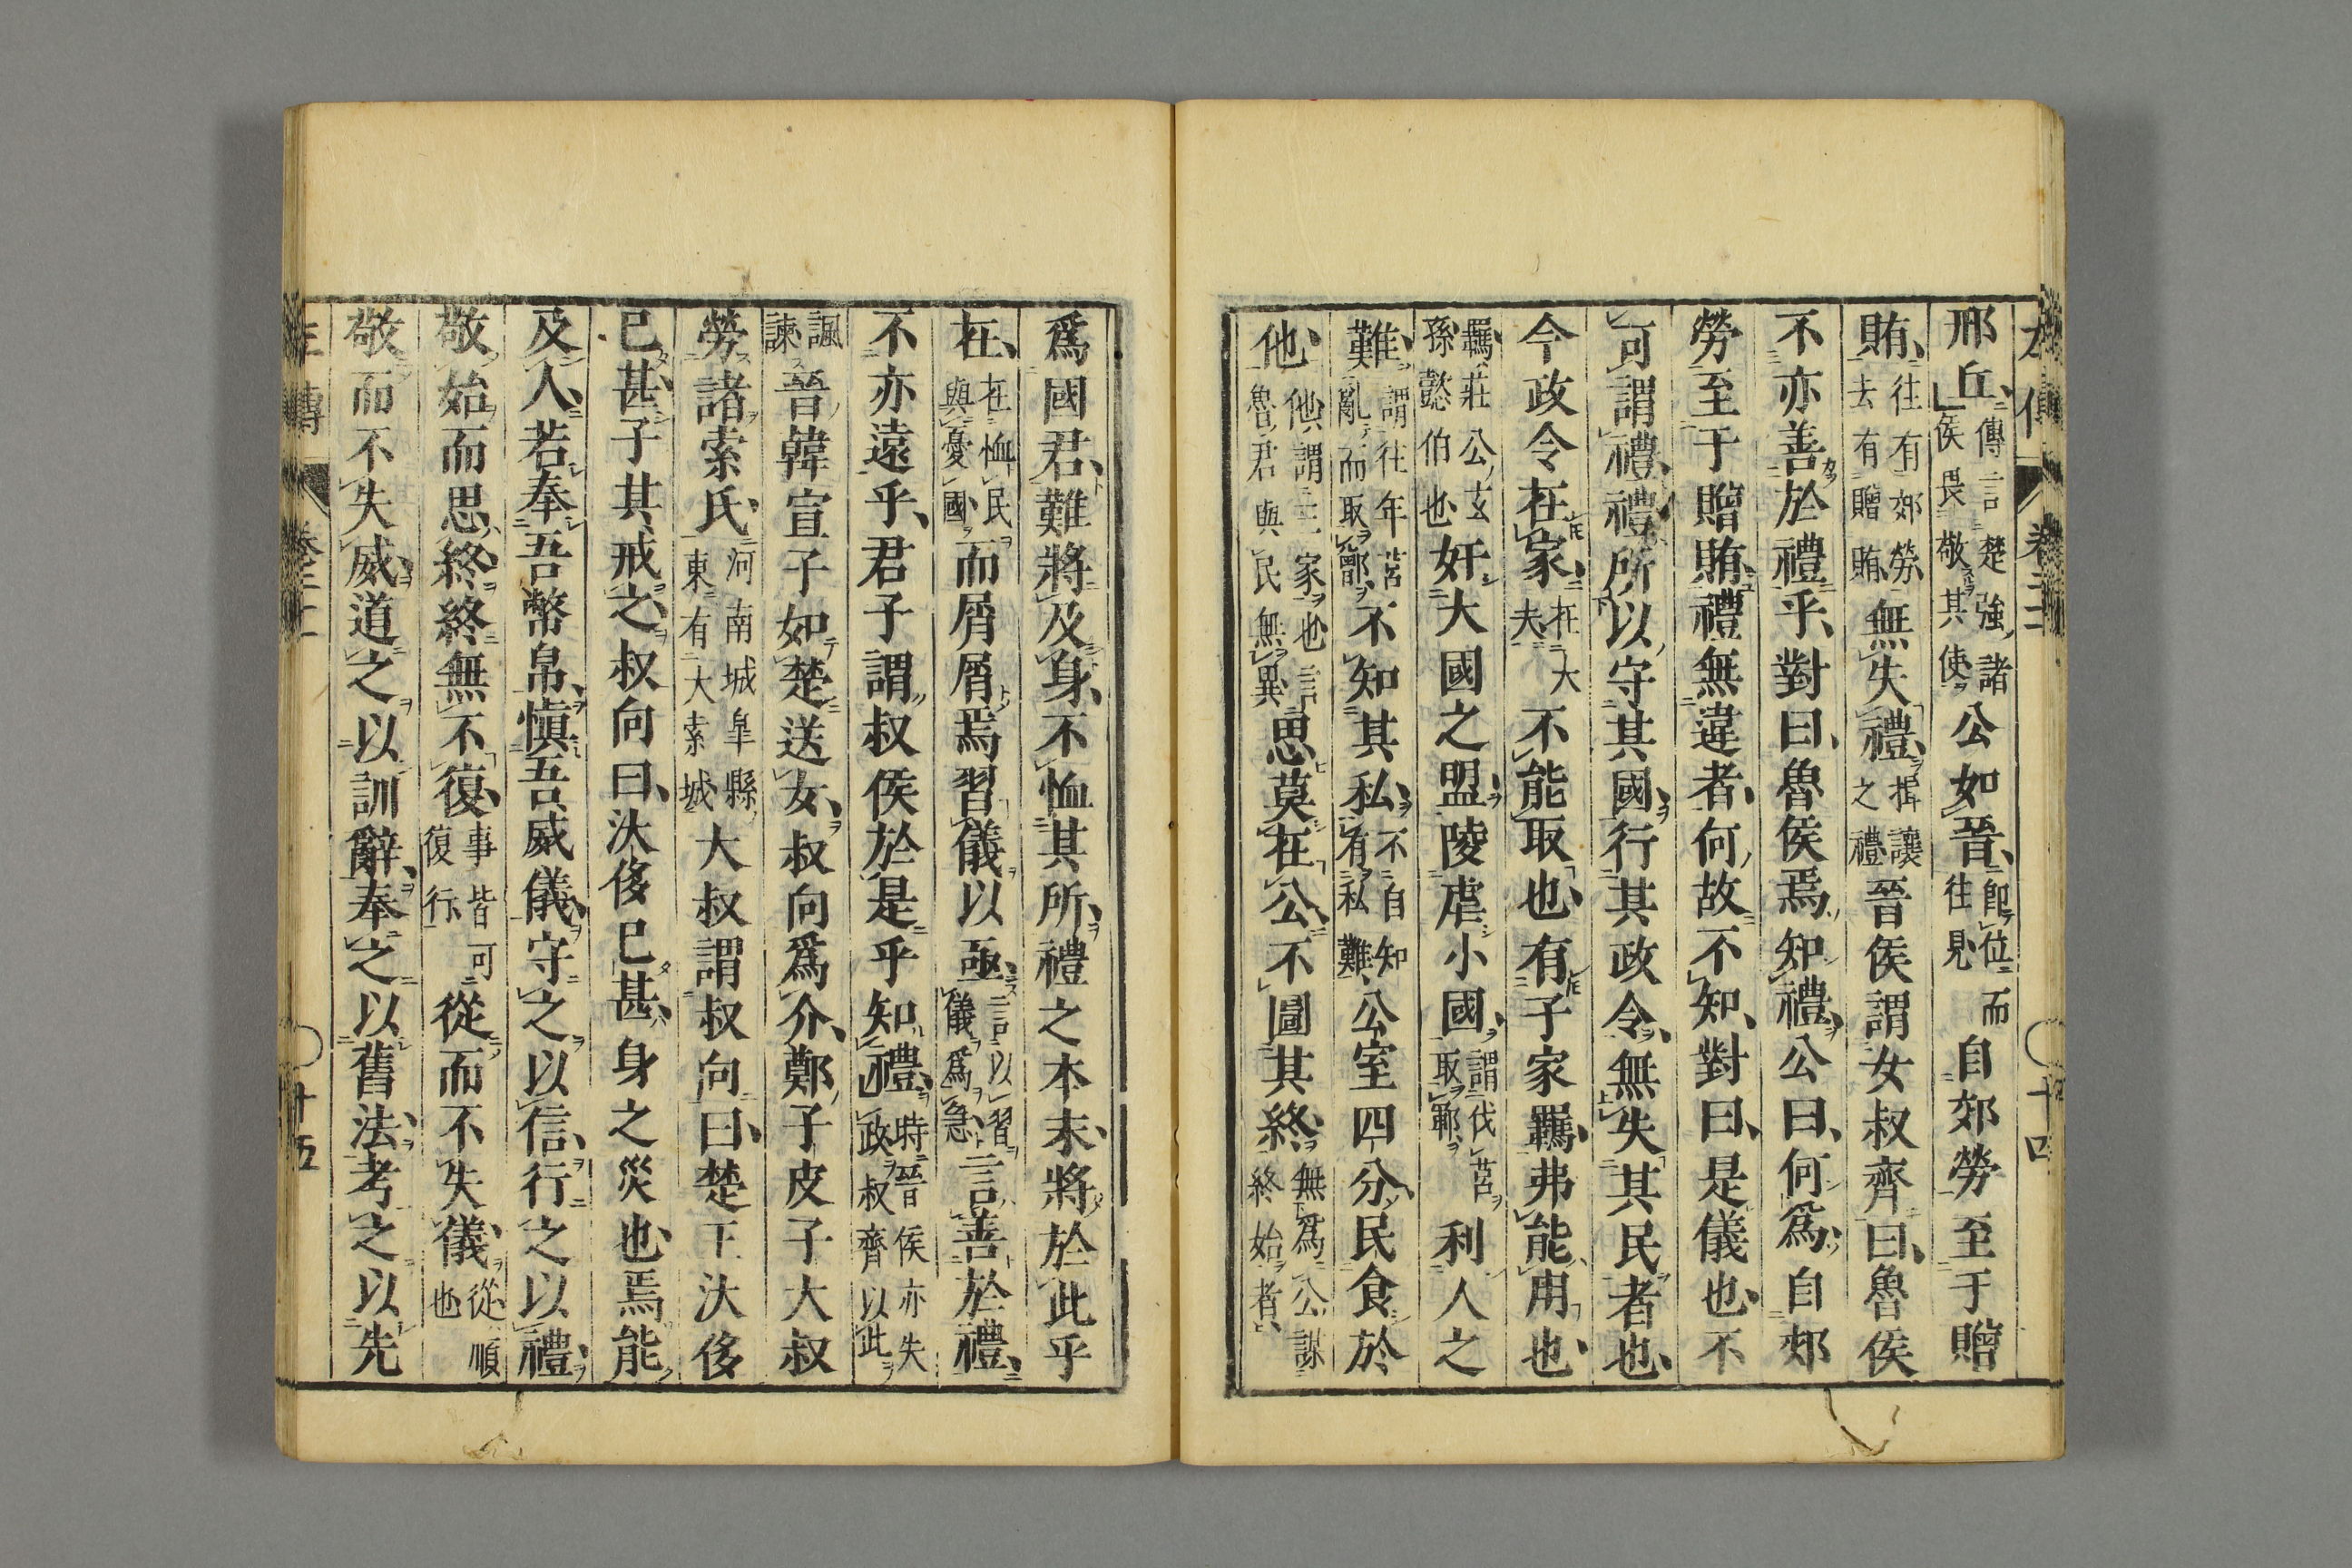 左傳 卷二 十四
邢丘傳言楚強諸侯畏敬其使公如晉卽位而往見自郊勞至于贈
賄往有郊勞去有贈賄無失禮揖讓之禮晉侯謂女叔齊曰魯侯
不亦善於禮乎對曰魯侯焉知禮公曰何爲自郊
勞至于贈賄禮無違者何故不知對曰是儀也不
可謂禮禮所以守其國行其政令無失其民者也
今政令在家在大夫不能取也有子家羈弗能用也
羈莊公玄孫懿伯也奸大國之盟陵虐小國謂伐莒取鄆利人之
難謂往年莒亂而取鄫不知其私不自知有私難公室四分民食於
他他謂三家也言魯君與民無異思莫在公不圖其終無爲公謀終始者
爲國君難將及身不恤其所禮之本末將於此乎
在在恤民與憂國而屑屑焉習儀以亟言以習儀爲急言善於禮
不亦遠乎君子謂叔侯於是乎知禮時晉侯亦失政叔齊以此
諷諫晉韓宣子如楚送女叔向爲介鄭子皮子大叔
勞諸索氏河南城皐縣東有大索城大叔謂叔向曰楚王汏侈
已甚子其戒之叔向曰汏侈已甚身之災也焉能
及人若奉吾幣帛愼吾威儀守之以信行之以禮
敬始而思終終無不復事皆可復行從而不失儀從順也
敬而不失威道之以訓辭奉之以舊法考之以先
左傳 十五